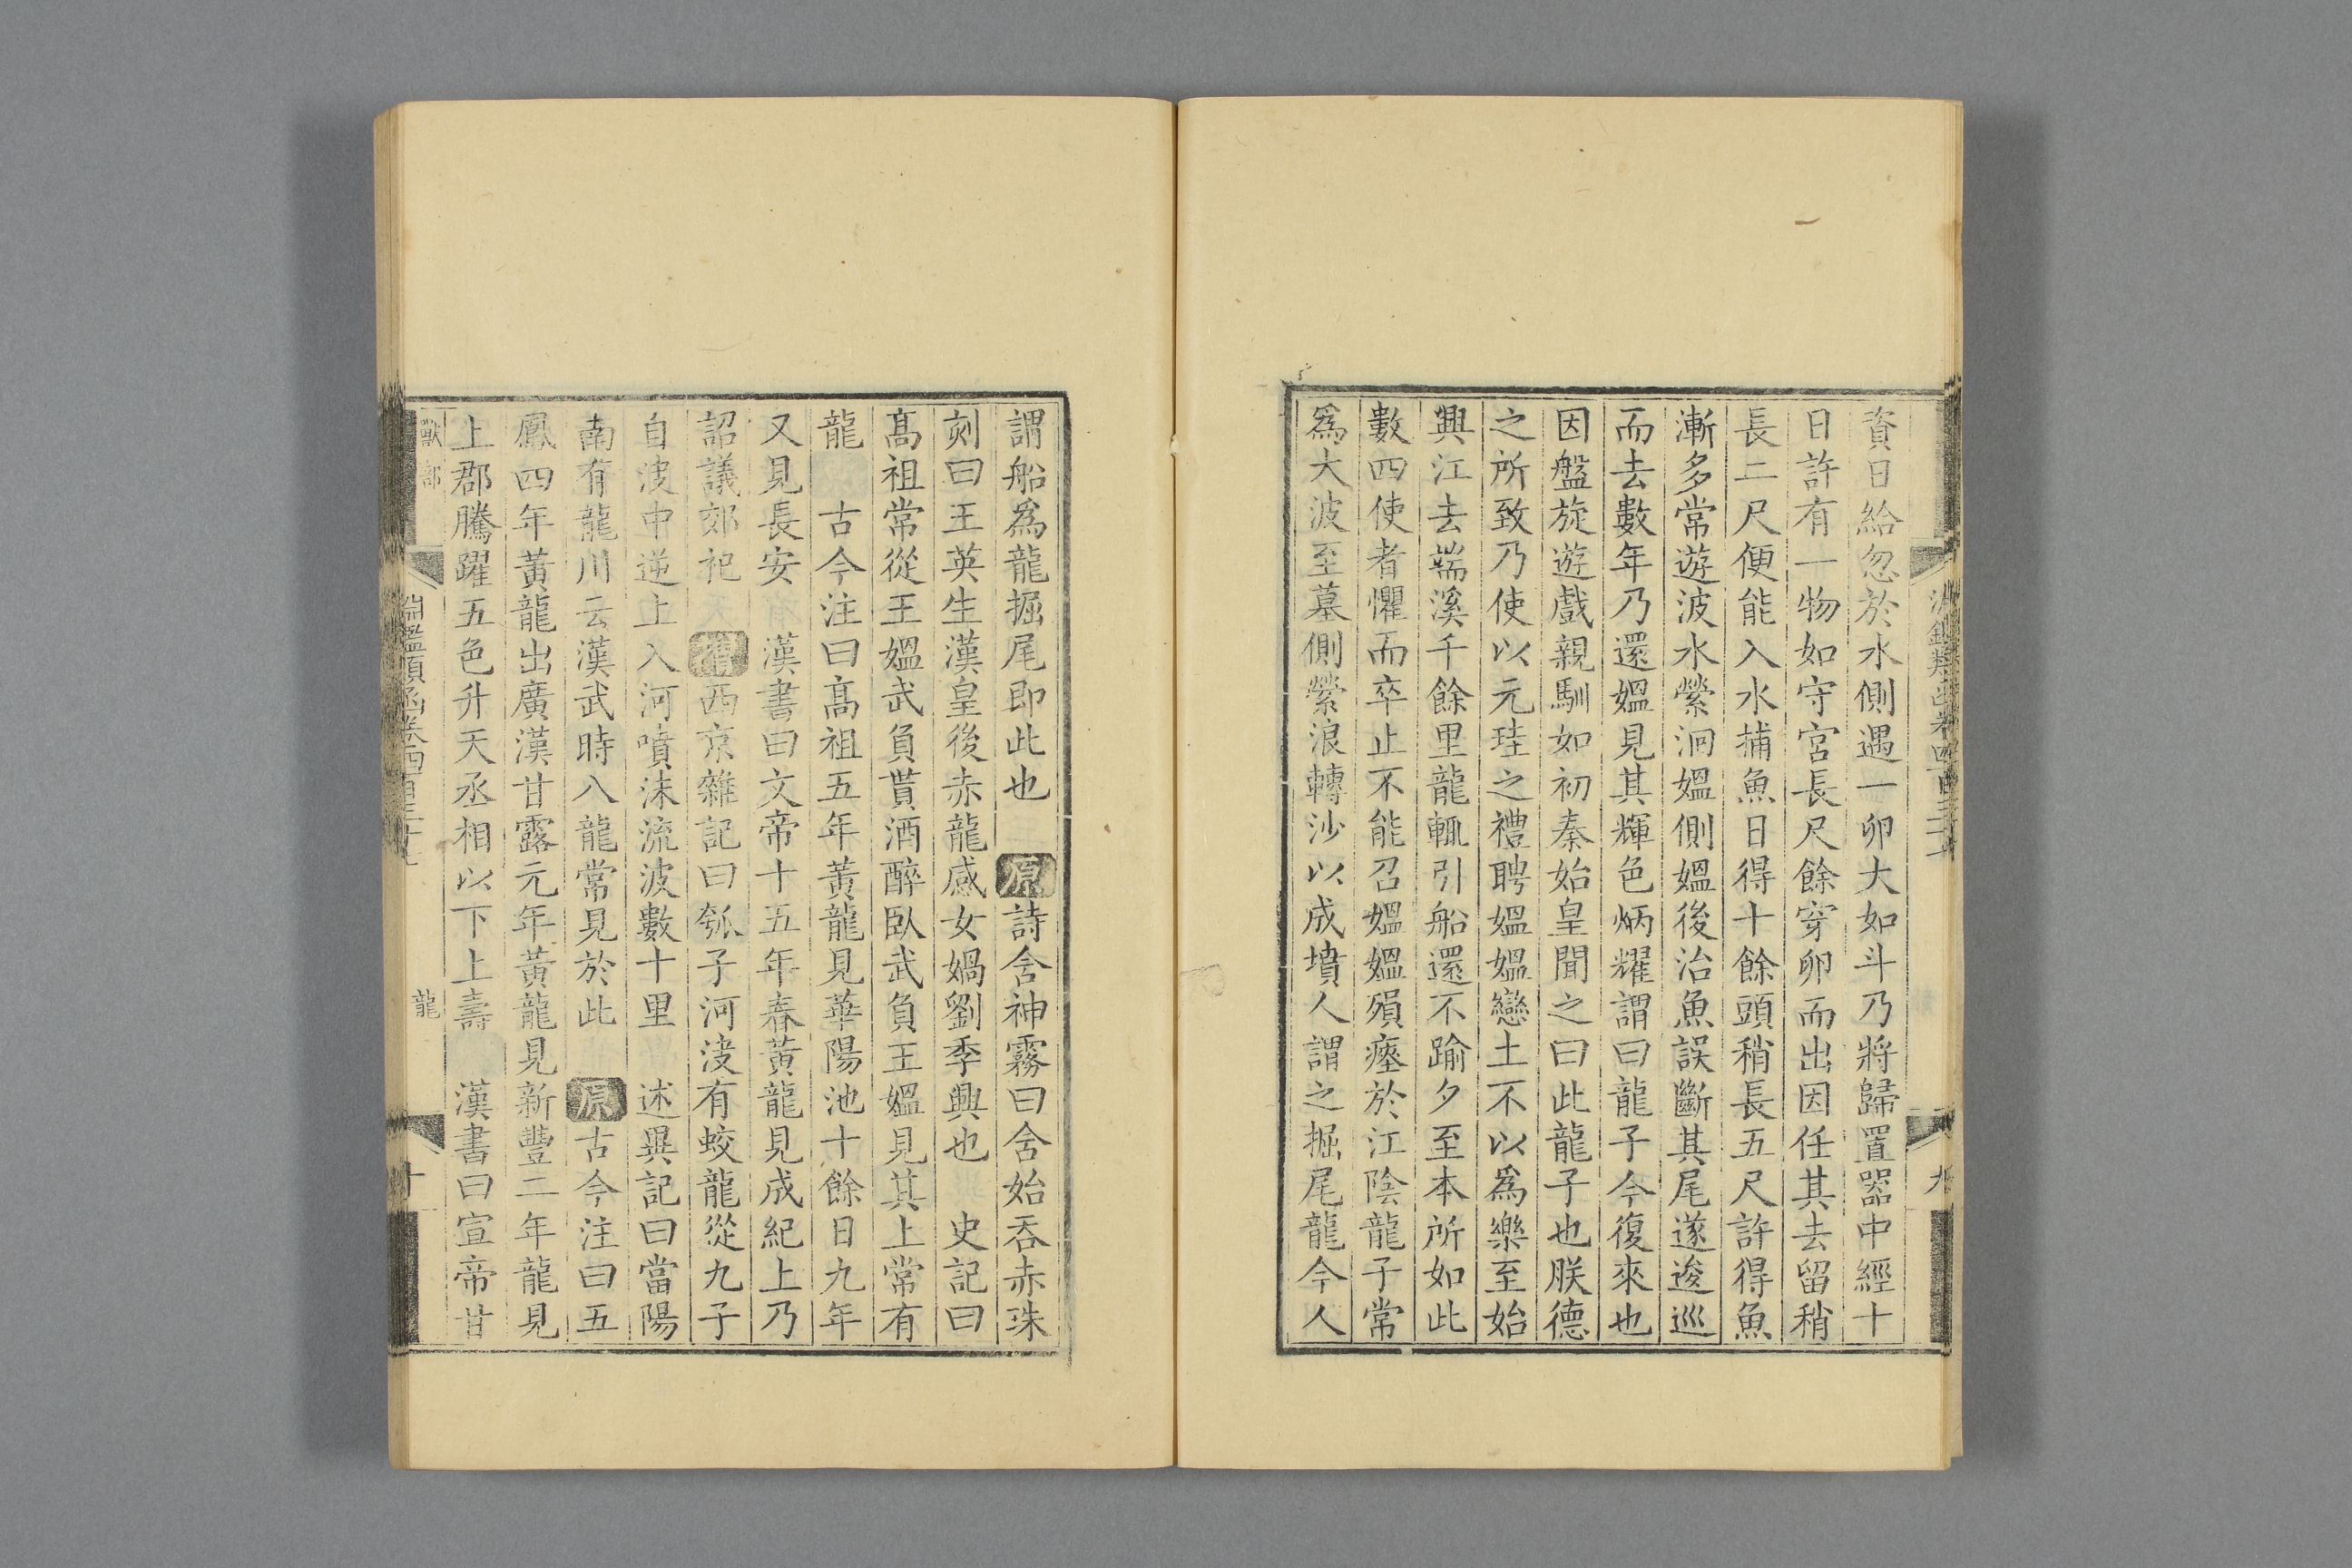 資日給忽於水側遇一卵大如斗乃將歸置器中經十
日許有一物如守宮長尺餘穿卵而出因任其去留稍
長二尺便能入水捕魚日得十餘頭稍長五尺許得魚
漸多常遊波水縈洄媼側媼後治魚誤斷其尾遂逡巡
而去數年乃還媼見其輝色炳耀謂曰龍子今復來也
因盤旋遊戲親馴如初秦始皇聞之曰此龍子也朕德
之所致乃使以元珪之禮聘媼媼戀土不以爲樂至始
興江去端溪千餘里龍輒引船還不踰夕至本所如此
數四使者懼而卒止不能召媼媼殞瘞於江陰龍子常
爲大波至墓側縈浪轉沙以成墳人謂之掘尾龍今人
謂船爲龍掘尾即此也 原詩含神霧曰含始吞赤珠
刻曰王英生漢皇後赤龍感女媧劉季興也 史記曰
高祖常從王媼武負貰酒醉臥武負王媼見其上常有
龍 古今注曰高祖五年黃龍見華陽池十餘日九年
又見長安 漢書曰文帝十五年春黃龍見成紀上乃
詔議郊祀 增西京雜記曰瓠子河決有蛟龍從九子
自波中逆上入河噴沫流波數十里 述異記曰當陽
南有龍川云漢武時八龍常見於此 原古今注曰五
鳳四年黃龍出廣漢甘露元年黃龍見新豐二年龍見
上郡騰躍五色升天丞相以下上壽 漢書曰宣帝甘
獸部 淵鑑類函卷四百三十七 龍 十